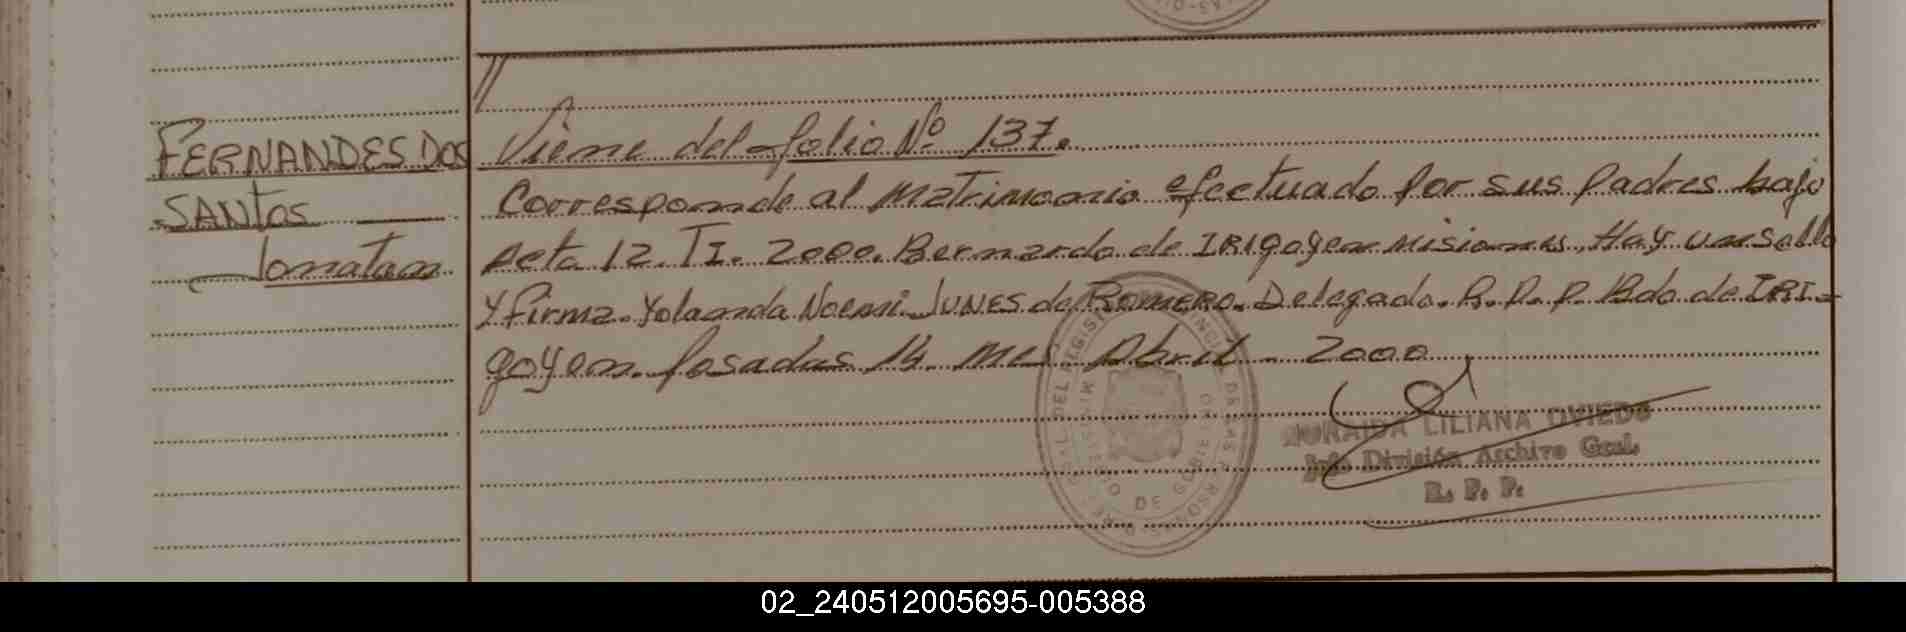 FERNANDES DOS
SANTOS
Jonatan
Viene del folio Nº 137.
Corresponde al Matrimonio efectuado por sus padres bajo
Acta 12. TI. 2000. Bernardo de IRIgoyen Misiones, Hay un Sello
y firma. Yolanda Noemi JUNES de ROMERO. Delegada. R. P. P. Bdo. de IRI-
goyen. Posadas 14 Mes Abril - 2000
LILIANA OVIEDO
Jefe División Archivo Gral.
R. P. P.
MINISTERIO DE GOBIERNO
02_240512005695-005388